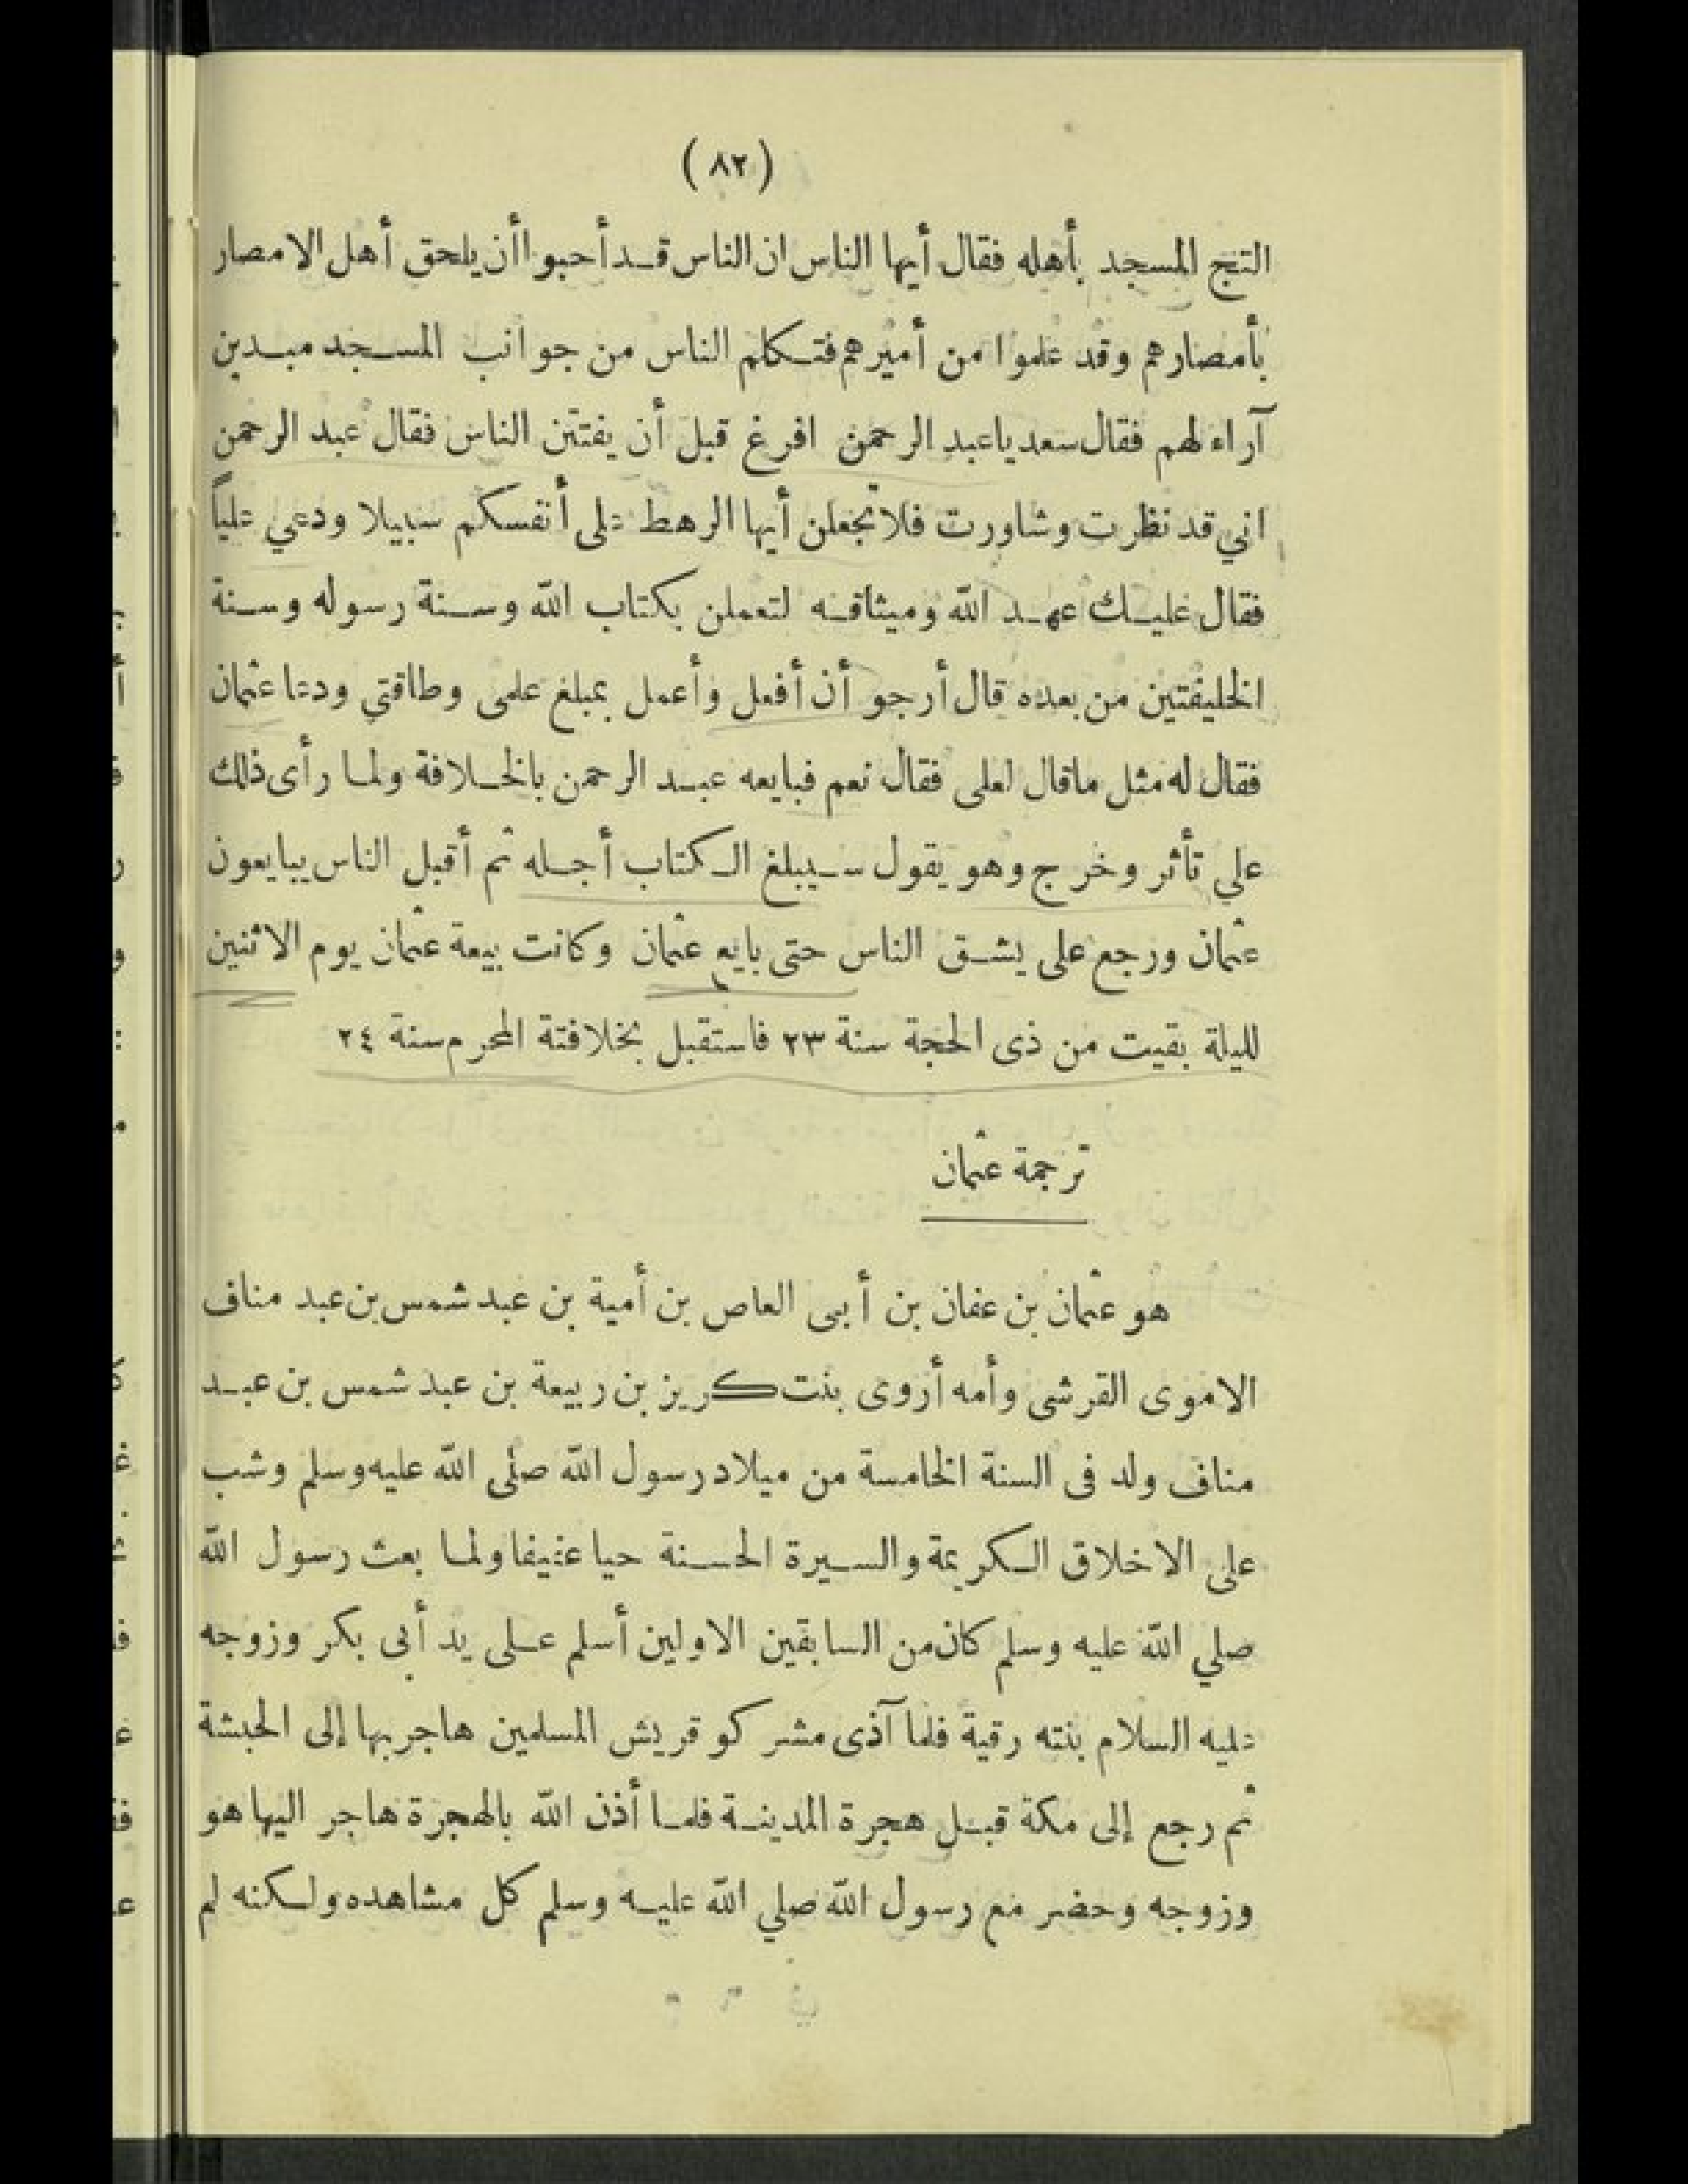 (٨٢)
التج المسجد بأهله فقال أيها الناس ان الناس قد أحبوا أن يلحق أهل الامصار
بأمصارهم وقد علموا من أميرهم فتكلم الناس من جوانب المسجد مبدين
آراء لهم فقال سعد ياعبد الرحمن افرغ قبل أن يفتتن الناس فقال عبد الرحمن
اني قد نظرت وشاورت فلا تجعلن أيها الرهط على أنفسكم سبيلا ودعي علياً
فقال عليك عهد الله وميثاقه لتعملن بكتاب الله وسنة رسوله وسنة
الخليفتين من بعده قال أرجو أن أفعل وأعمل بمبلغ علمى وطاقتي ودعا عثمان
فقال له مثل ماقال لعلى فقال نعم فبايعه عبد الرحمن بالخلافة ولما رأى ذلك
علي تأثر وخرج وهو يقول سيبلغ الكتاب أجله ثم أقبل الناس يبايعون
عثمان ورجع على يشق الناس حتى بايع عثمان وكانت بيعة عثمان يوم الاثنين
لليلة بقيت من ذى الحجة سنة ٢٣ فاستقبل بخلافتة المحرم سنة ٢٤
ترجمة عثمان
هو عثمان بن عفان بن أبى العاص بن أمية بن عبد شمس بن عبد مناف
الاموى القرشى وأمه أروى بنت كريز بن ربيعة بن عبد شمس بن عبد
مناف ولد فى السنة الخامسة من ميلاد رسول الله صلى الله عليه وسلم وشب
على الاخلاق الكريمة والسيرة الحسنة حيا عفيفا ولما بعث رسول الله
صلي الله عليه وسلم كان من السابقين الاولين أسلم على يد أبى بكر وزوجه
عليه السلام بنته رقية فلما آذى مشركو قريش المسلمين هاجر بها إلى الحبشة
ثم رجع إلى مكة قبل هجرة المدينة فلما أذن الله بالهجرة هاجر اليها هو
وزوجه وحضر مع رسول الله صلي الله عليه وسلم كل مشاهده ولكنه لم